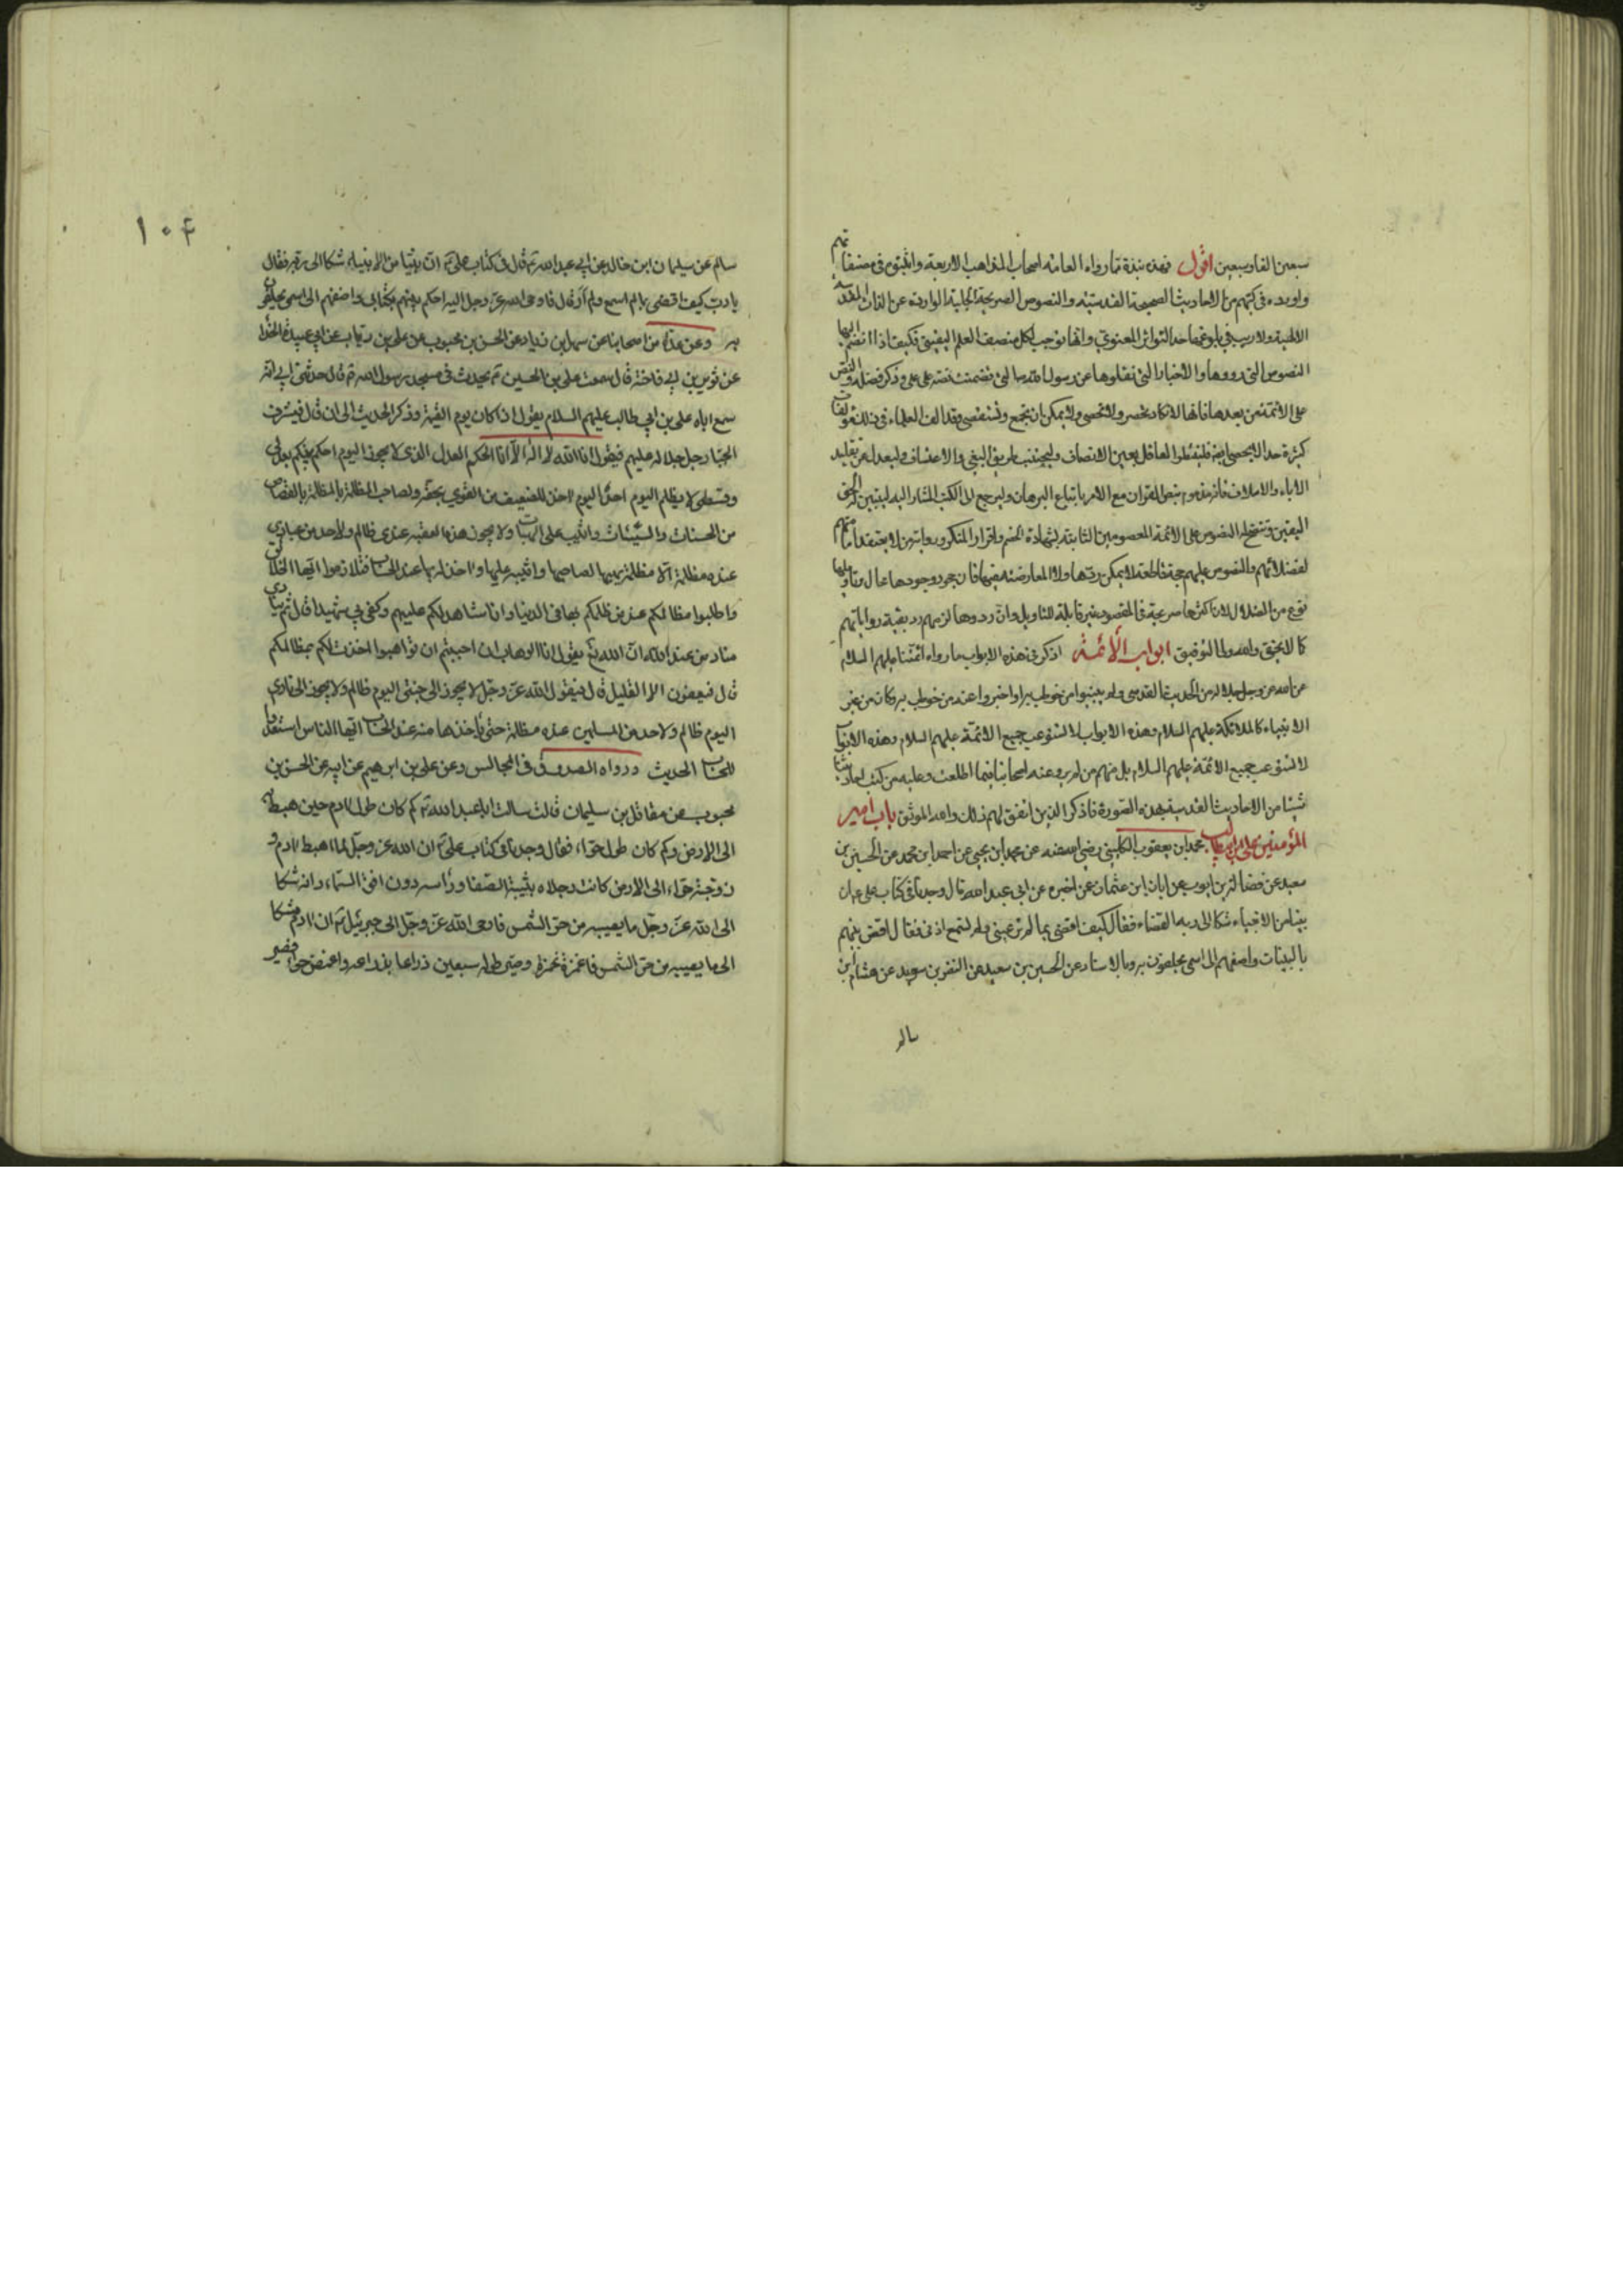 سبعين الفا وسبعين اقول فهذه نبذة مما رواه العامة اصحاب المذاهب الاربعة واثبتوه في مصنفاتهم
واوردوه في كتبهم من الاحاديث الصحيحة القدسية والنصوص الصريحة الجلية الواردة عن الذات المقدسة
الالهية ولا ريب في بلوغها حد التواتر المعنوي وانها توجب لكل منصف العلم اليقيني فكيف اذا انضم اليها
النصوص التي رووها والاخبار التي نقلوها عن رسول الله صلى الله عليه وذكر فضله والنص
على الائمة من بعده فانها لا تكاد تحصر ولا تحصى ولا يمكن ان تجمع وتستقصى وقد الف العلماء في ذلك مؤلفات
كثيرة جدا لا تحصى فلينظر العاقل بعين الانصاف وليجتنب طريق البغي والاعتساف وليعدل عن تقليد
الاباء والاسلاف فانه مذموم بنص القران مع الامر باتباع البرهان وليرجع الى الكتب المشار اليه ليتبين له الحق
اليقين وتتضح له النصوص على الائمة المعصومين الثابتة بشهادة الخصم واقرار المنكر ورواية من لا يعتقد امامتهم
لفضلائهم والنصوص عليهم حجة قاطعة لا يمكن ردها ولا المعارضة فيها فان وجودها عال وتاويلها
نوع من الضلال لان اكثرها صريحة في المقصود غير قابلة للتاويل وان ردوها لزمهم رد بقية رواياتهم
كما لا يخفى والله ولي التوفيق ابواب الائمة اذكر في هذه الابواب ما رواه ائمتنا عليهم السلام
عن الله عز وجل بلا من الحديث القدسي ولم يبينوا من خوطب به او اخبروا عنه من خوطب به وكان من غير
الانبياء كالملائكة عليهم السلام وهذه الابواب لا تستوعب جميع الائمة عليهم السلام وهذه الابواب
لا تستوعب جميع الائمة عليهم السلام بل منهم من لم يرو عنه اصحابنا فيما اطلعت عليه من كتب احاديثنا
شيئا من الاحاديث القدسية بهذه الصورة فاذكر الذين اتفق لهم ذلك والله الموفق باب امير
المؤمنين علي بن ابي طالب محمد بن يعقوب الكليني رضي الله عنه عن محمد بن يحيى عن احمد بن محمد عن الحسين بن
سعيد عن فضالة بن ايوب عن ابان ابن عثمان عن اخبره عن ابي عبد الله قال وجدنا في كتاب علي ع ان
نبيا من الانبياء شكا الى ربه القضاء فقال كيف اقضي بما لم تر عيني ولم تسمع اذني فقال اقض بينهم
بالبينات واضفهم الى اسمي يحلفون به وبالاسناد عن الحسين بن سعيد عن النضر بن سويد عن هشام بن
سالم
١٠۴
سالم عن سليمان ابن خالد عن ابي عبد الله ع قال في كتاب علي ع ان نبيا من الانبياء شكا الى ربه فقال
يا رب كيف اقضي بما لم اسمع ولم أر قال فاوحى الله عز وجل اليه احكم بينهم بكتابي واضفهم الى اسمي يحلفون
به وعن عدة من اصحابنا عن سهل بن زياد عن الحسن بن محبوب عن علي بن رئاب عن ابي عبيدة الحذا
عن ثوير بن ابي فاختة قال سمعت علي بن الحسين ع يحدث في مسجد رسول الله ص قال حدثني ابي انه
سمع اباه علي بن ابي طالب عليهم السلام يقول اذا كان يوم القيمة وذكر الحديث الى ان قال فيشرف
الجبار جل جلاله عليهم فيقول انا الله لا اله الا انا الحكم العدل الذي لا يجور اليوم احكم بينكم بعدلي
وقسطي لا يظلم اليوم احدا اليوم اخذ للضعيف من القوي بحقه ولصاحب المظلمة بالمظلمة بالقصاص
من الحسنات والسيئات واثيب على الهبات ولا يجوز هذه العقبة عندي ظالم ولا احد من عبادي
عنده مظلمة الا مظلمة يهبها لصاحبها واثيبه عليها واخذ له بها عند الحساب فتلازموا ايها الخلائق
واطلبوا مظالمكم عند من ظلمكم بها في الدنيا وانا شاهد لكم عليهم وكفى بي شهيدا قال ثم ينادي
مناد من عند الله ان الله تع يقول انا الوهاب ان احببتم ان تواهبوا اخذت لكم بمظالمكم
قال فيعفون الا القليل قال فيقول الله عز وجل لا يجوز الى جنتي اليوم ظالم ولا يجوز الى ناري
اليوم ظالم ولا احد من المسلمين عنده مظلمة حتى ياخذها منه عند الحساب ايها الناس استعدوا
للحساب الحديث ورواه الصدوق في المجالس وعن علي بن ابرهيم عن ابيه عن الحسن بن
محبوب عن مقاتل بن سليمان قال سالت ابا عبد الله ع كم كان طول ادم حين هبط به
الى الارض وكم كان طول حواء فقال وجدنا في كتاب علي ع ان الله عز وجل لما اهبط ادم و
زوجته حواء الى الارض كانت رجلاه بثنية الصفا وراسه دون افق السماء وانه شكا
الى الله عز وجل ما يصيبه من حر الشمس فاوحى الله عز وجل الى جبرئيل ع ان ادم شكا
الي ما يصيبه من حر الشمس فاغمزه غمزة وصير طوله سبعين ذراعا بذراعه واغمز حواء فصير